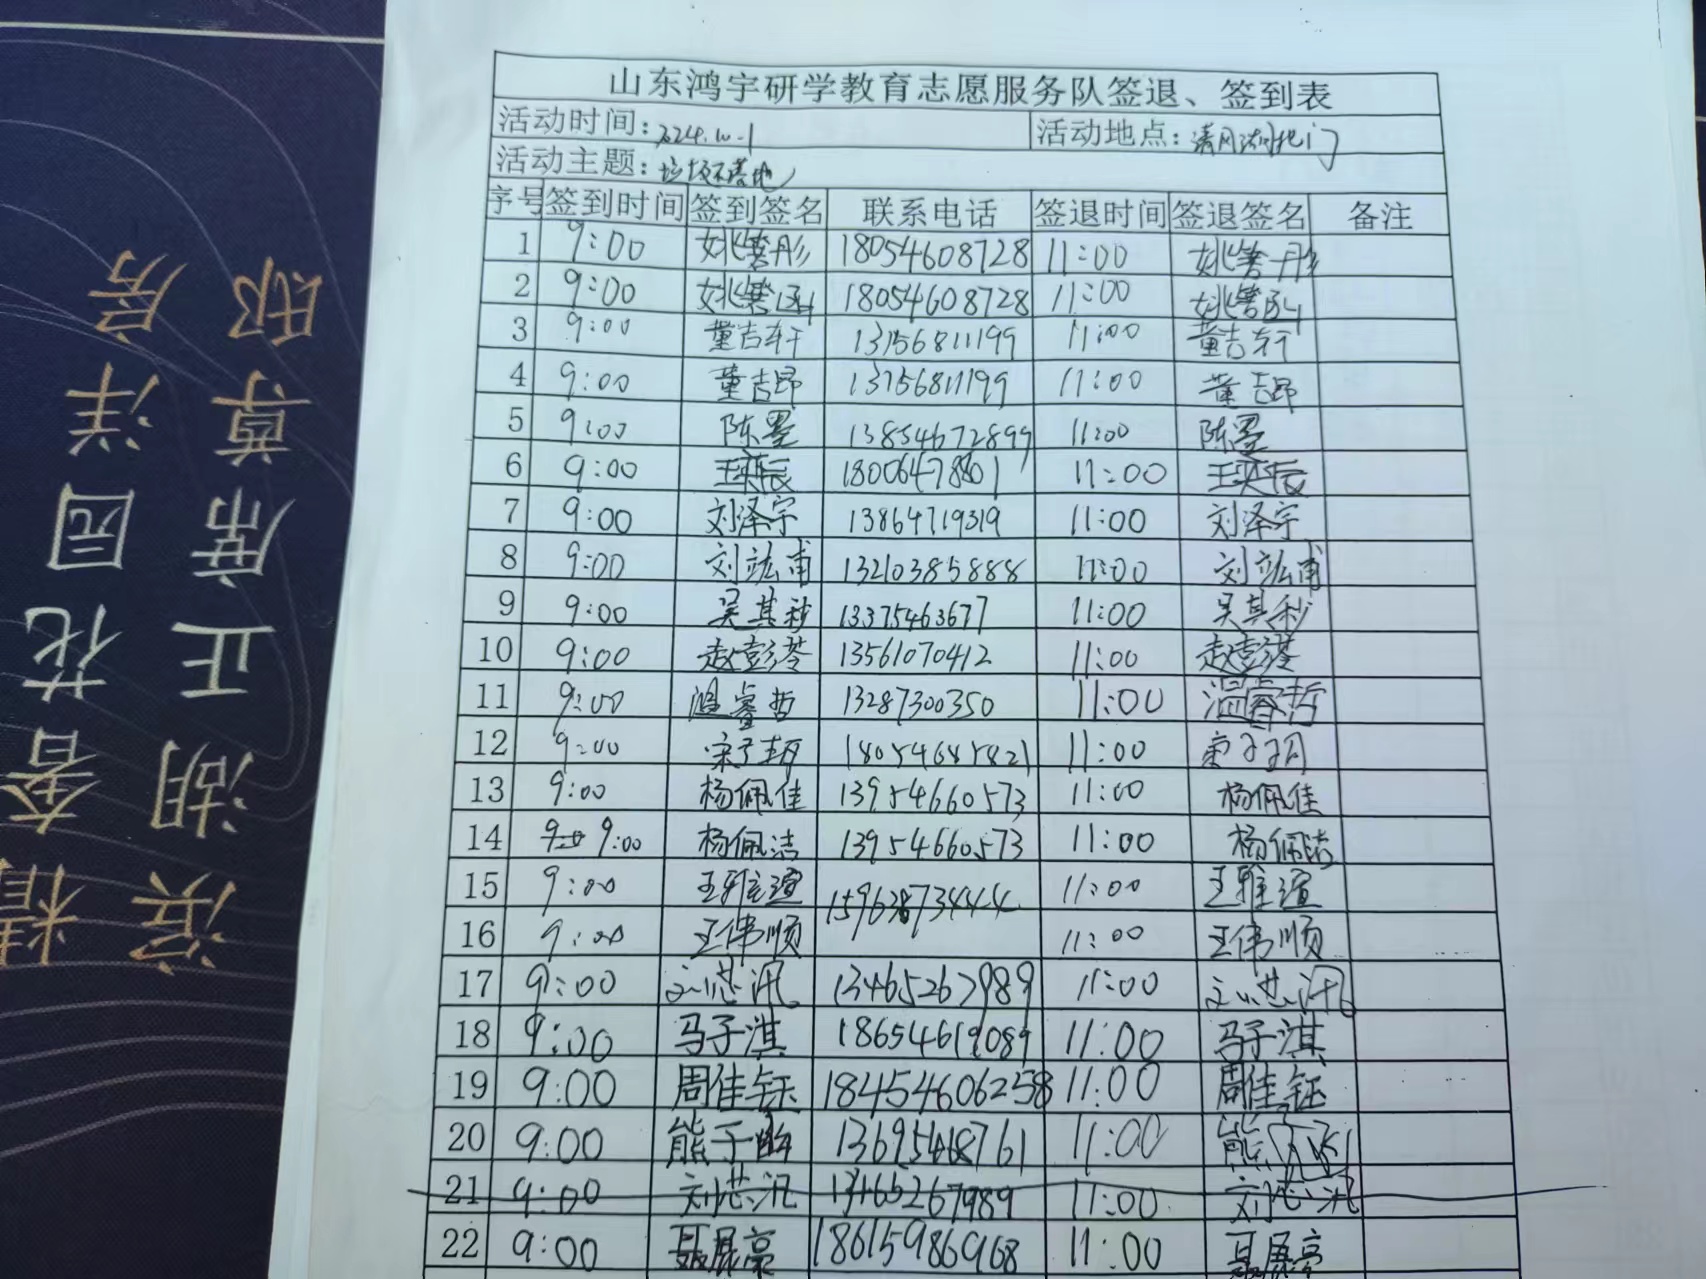 山东鸿宇研学教育志愿服务队签退、签到表
活动时间：2024.10.1 活动地点：清风湖北门
活动主题：垃圾不落地
序号 签到时间 签到签名 联系电话 签退时间 签退签名 备注
1 9:00 18054608728 11:00
2 9:00 18054608728 11:00
3 9:00 董吉轩 13756811199 11:00 董吉轩
4 9:00 董吉昂 13756811199 11:00 董吉昂
5 9:00 陈墨 13854672899 11:00 陈墨
6 9:00 王奕辰 18006478601 11:00 王奕辰
7 9:00 刘泽宇 13864719319 11:00 刘泽宇
8 9:00 刘竑甫 13210385888 11:00 刘竑甫
9 9:00 吴其秒 13375463677 11:00 吴其秒
10 9:00 13561070412 11:00
11 9:00 温睿哲 13287300350 11:00 温睿哲
12 9:00 11:00
13 9:00 杨佩佳 13954660573 11:00 杨佩佳
14 9:00 杨佩洁 13954660573 11:00 杨佩洁
15 9:00 王雅萱 11:00 王雅萱
16 9:00 王伟顺 11:00 王伟顺
17 9:00 刘芯汛 13465267989 11:00 刘芯汛
18 9:00 马子淇 18654619089 11:00 马子淇
19 9:00 周佳钰 18454606258 11:00 周佳钰
20 9:00 11:00
21 9:00 刘芯汛 13465267989 11:00 刘芯汛
22 9:00 聂展豪 18615986968 11:00 聂展豪
滨湖正席尊邸
精奢花园洋房